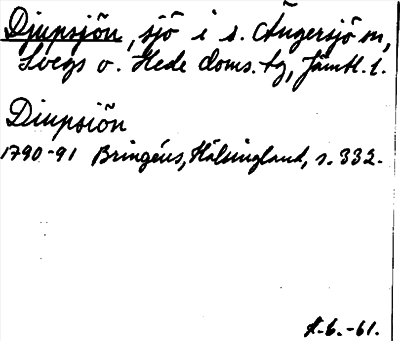 Djupsjön, sjö i s. Ängersjö sn,
Svegs o. Hede doms. tg, Jämtl. l.
Diupsiön
1790-91 Bringéus, Hälsingland, s. 332.
6.-61.